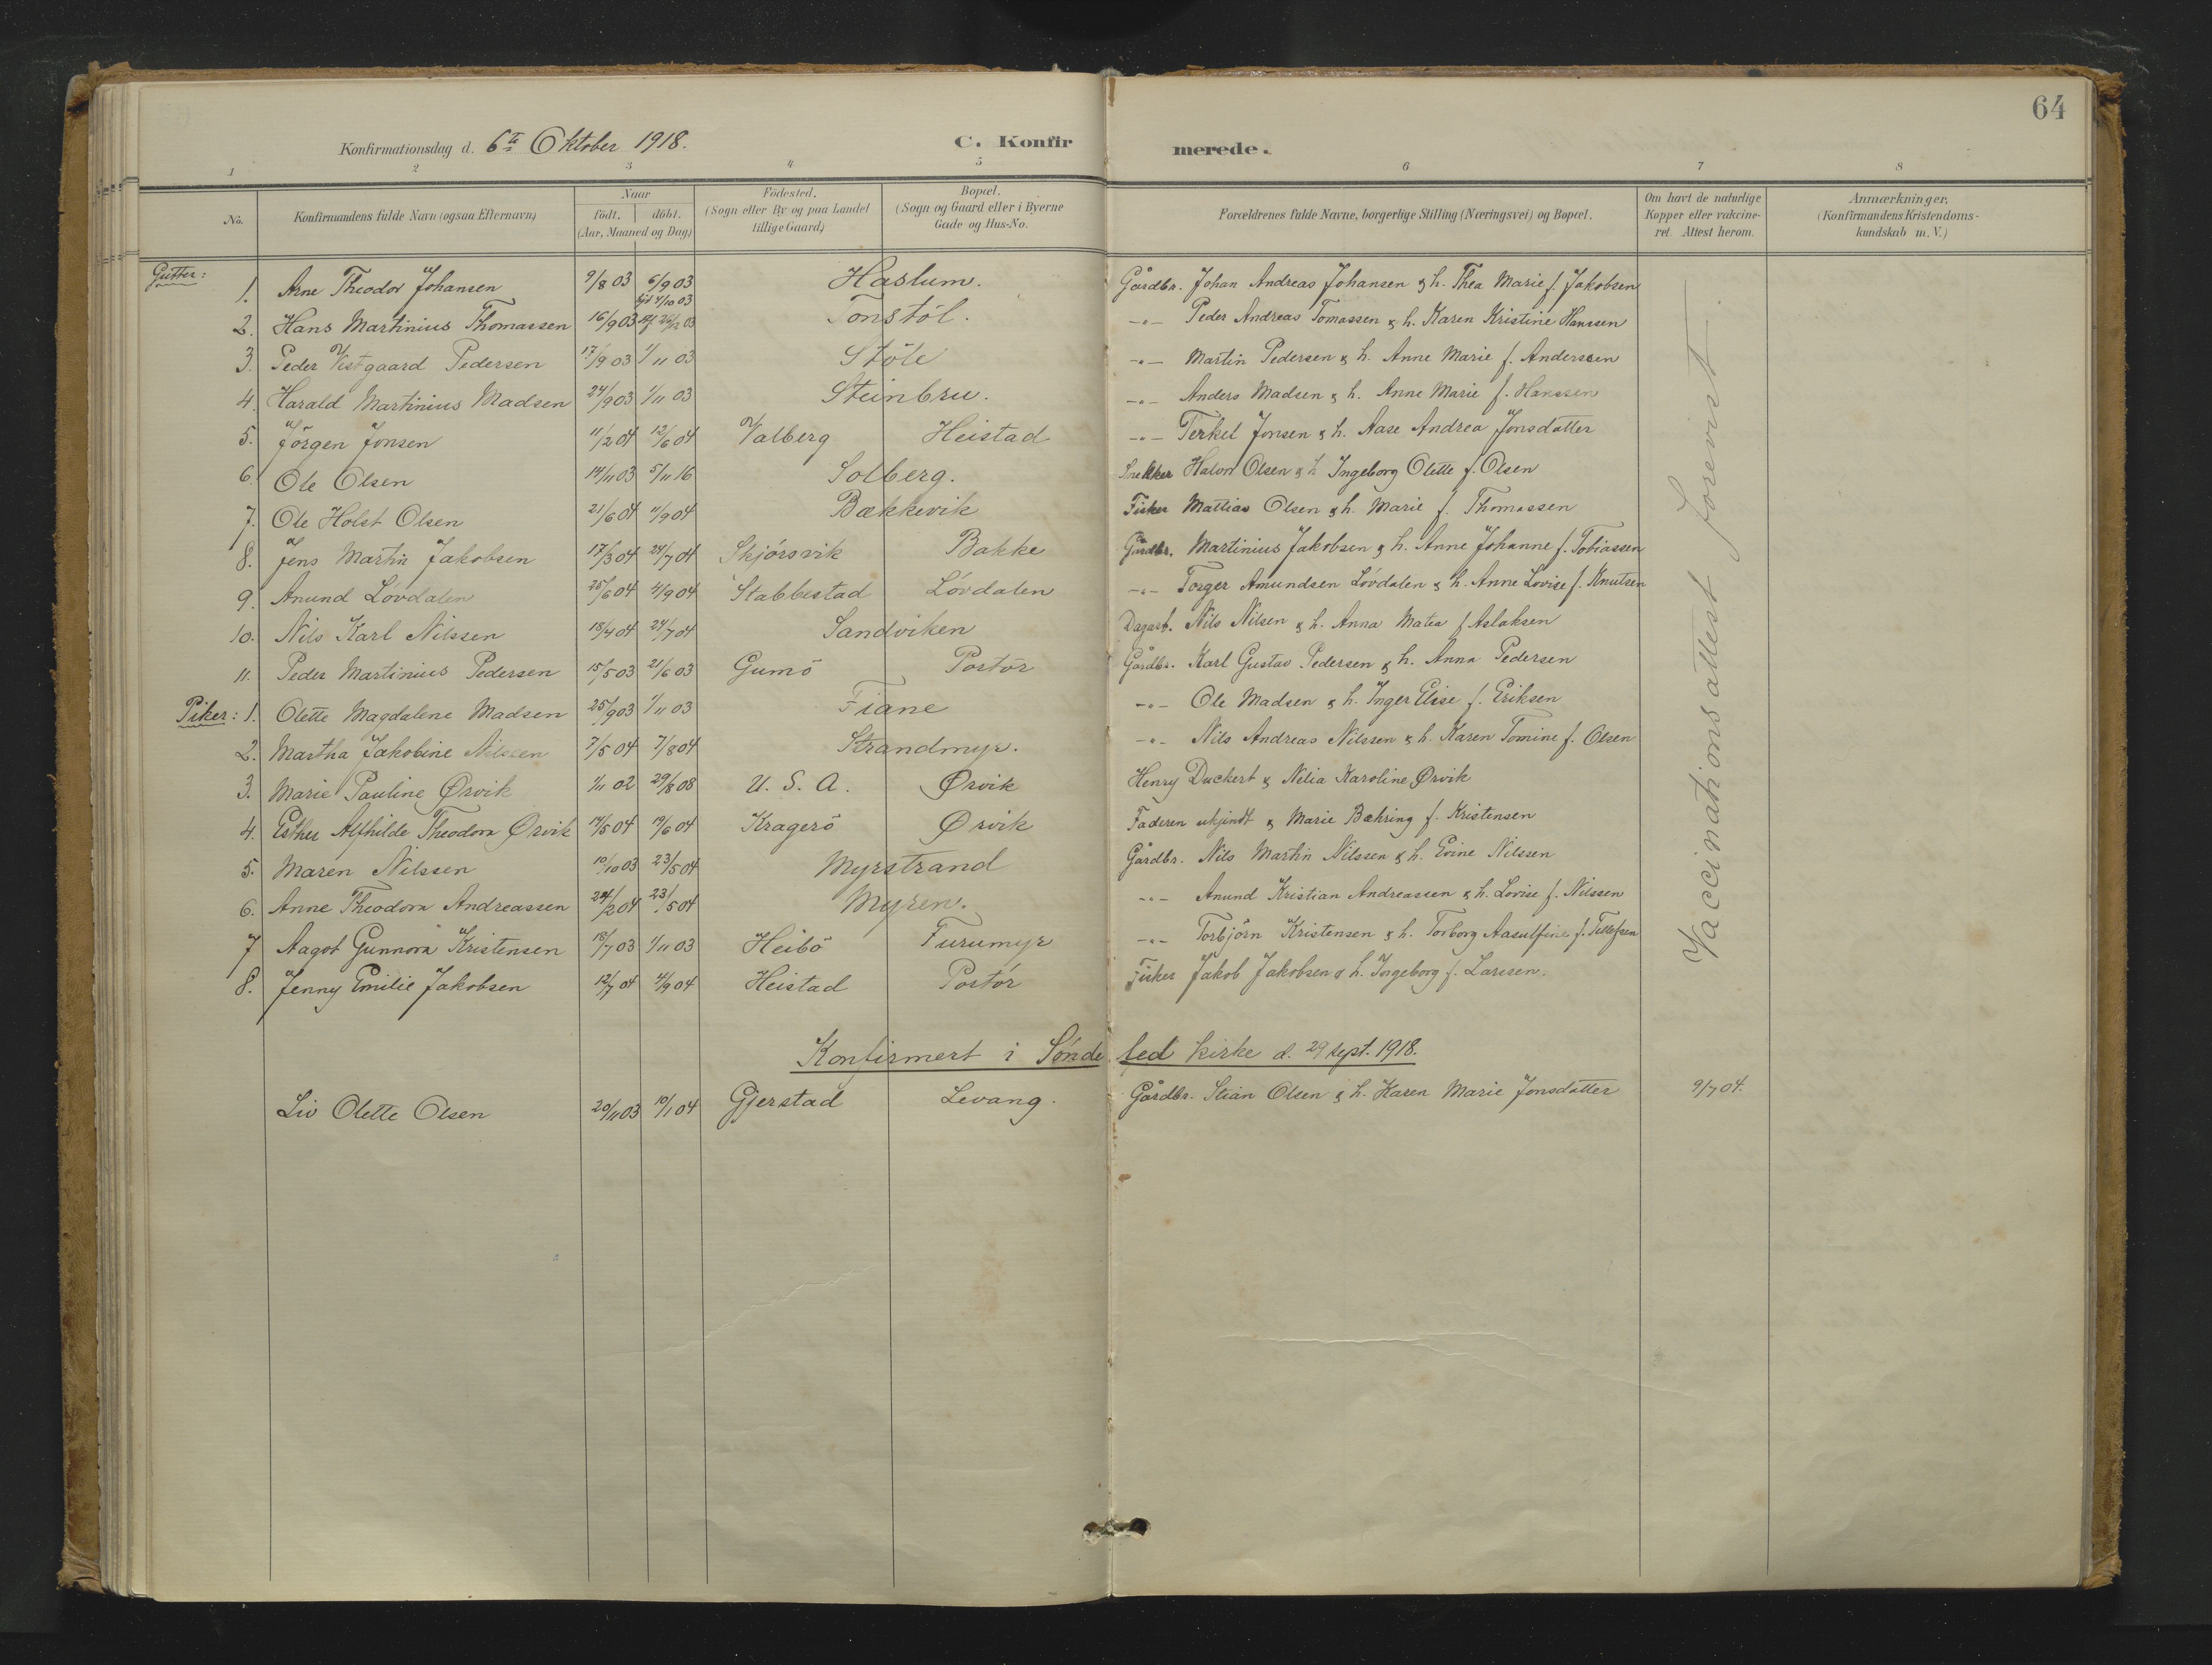 64
Konfirmationsdag d. 6te Oktober 1918. C. Konfirmerede.
1 2 3 4 5 6 7 8
No. Konfirmandens fulde Navn (ogsaa Efternavn) Naar født. døbt. (Aar, Maaned og Dag) Födested. (Sogn eller By og paa Landet tillige Gaard) Bopæl. (Sogn og Gaard eller i Byerne Gade og Hus-No. Forældrenes fulde Navne, borgerlige Stilling (Næringsvei) og Bopæl. Om havt de naturlige Kopper eller vakcineret. Attest herom. Anmærkninger. (Konfirmandens Kristendomskundskab m. V.)
Gutter: 1. Arne Theodor Johansen 9/8 03 6/9 03 Haslum. Gårdbr. Johan Andreas Johansen & h. Thea Marie f. Jakobsen
2. Hans Martinius Thomassen 16/9 03 4/10 03 26/12 03 Tonstöl. -"- Peder Andreas Tomassen & h. Karen Kristine Hanssen
3. Peder Vestgaard Pedersen 17/9 03 1/11 03 Stöle -"- Martin Pedersen & h. Anne Marie f. Anderssen
4. Harald Martinius Madsen 24/9 03 1/11 03 Steinbru. -"- Anders Madsen & h. Anne Marie f. Hanssen
5. Jörgen Jonsen 11/2 04 12/6 04 Valberg Heistad -"- Terkel Jonsen & h. Aase Andrea Jonsdatter
6. Ole Olsen 14/11 03 5/11 16 Solberg. Snekker Halvor Olsen & h. Ingeborg Olette f. Olsen
7. Ole Holst Olsen 21/6 04 11/9 04 Bækkevik Fisker Mattias Olsen & h. Marie f. Thomassen
8. Jens Martin Jakobsen 17/3 04 24/7 04 Skjörsvik Bakke Gårdbr. Martinius Jakobsen & h. Anne Johanne f. Tobiassen
9. Anund Lövdalen 25/6 04 4/9 04 Stabbestad Lövdalen -"- Torger Amundsen Lövdalen & h. Anne Lovise f. Knutsen
10. Nils Karl Nilssen 18/4 04 24/7 04 Sandviken Dagarb. Nils Nilsen & h. Anna Matea f. Aslaksen
11. Peder Martinius Pedersen 15/5 03 21/6 03 Gumö Portör Gårdbr. Karl Gustav Pedersen & h. Anna Pedersen
Piker: 1. Olette Magdalene Madsen 25/9 03 1/11 03 Fiane -"- Ole Madsen & h. Inger Elise f. Eriksen
2. Martha Jakobine Nilssen 7/5 04 7/8 04 Strandmyr. -"- Nils Andreas Nilssen & h. Karen Tomine f. Olsen
3. Marie Pauline Ørvik 1/11 02 29/8 08 U. S. A. Ørvik Henry Duckert & Nelia Karoline Ørvik
4. Esther Alfhilde Theodora Ørvik 14/5 04 19/6 04 Kragerö Ørvik Faderen ukjendt & Marie Bæhring f. Kristensen
5. Maren Nilssen 10/10 03 23/5 04 Myrstrand Gårdbr. Nils Martin Nilssen & h. Evine Nilssen
6. Anne Theodora Andreassen 24/2 04 23/5 04 Myren. -"- Anund Kristian Andreassen & h. Lovise f. Nilssen
7 Aagot Gunnora Kristensen 18/7 03 1/11 03 Heibö Furumyr -"- Torbjörn Kristensen & h. Torborg Aasulfine f. Tellefsen
8. Jenny Emilie Jakobsen 12/7 04 4/9 04 Heistad Portör Fisker Jakob Jakobsen & h. Ingeborg f. Larssen.
Vaccinationsattest forevist
Konfirmert i Sönde led kirke d. 29 sept. 1918.
Liv Olette Olsen 20/11 03 10/1 04 Gjerstad Levang. Gårdbr. Stian Olsen & h. Karen Marie Jonsdatter 9/7 04.